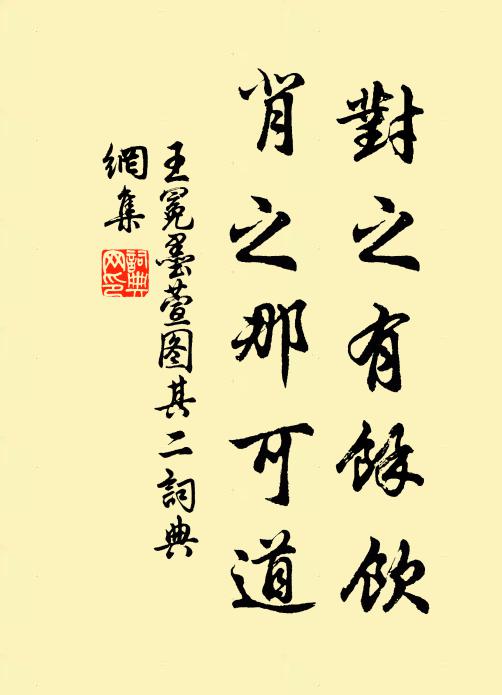 對之有餘飲
背之那可道
王冕墨萱图其二 詞典
網集
詞典
网印